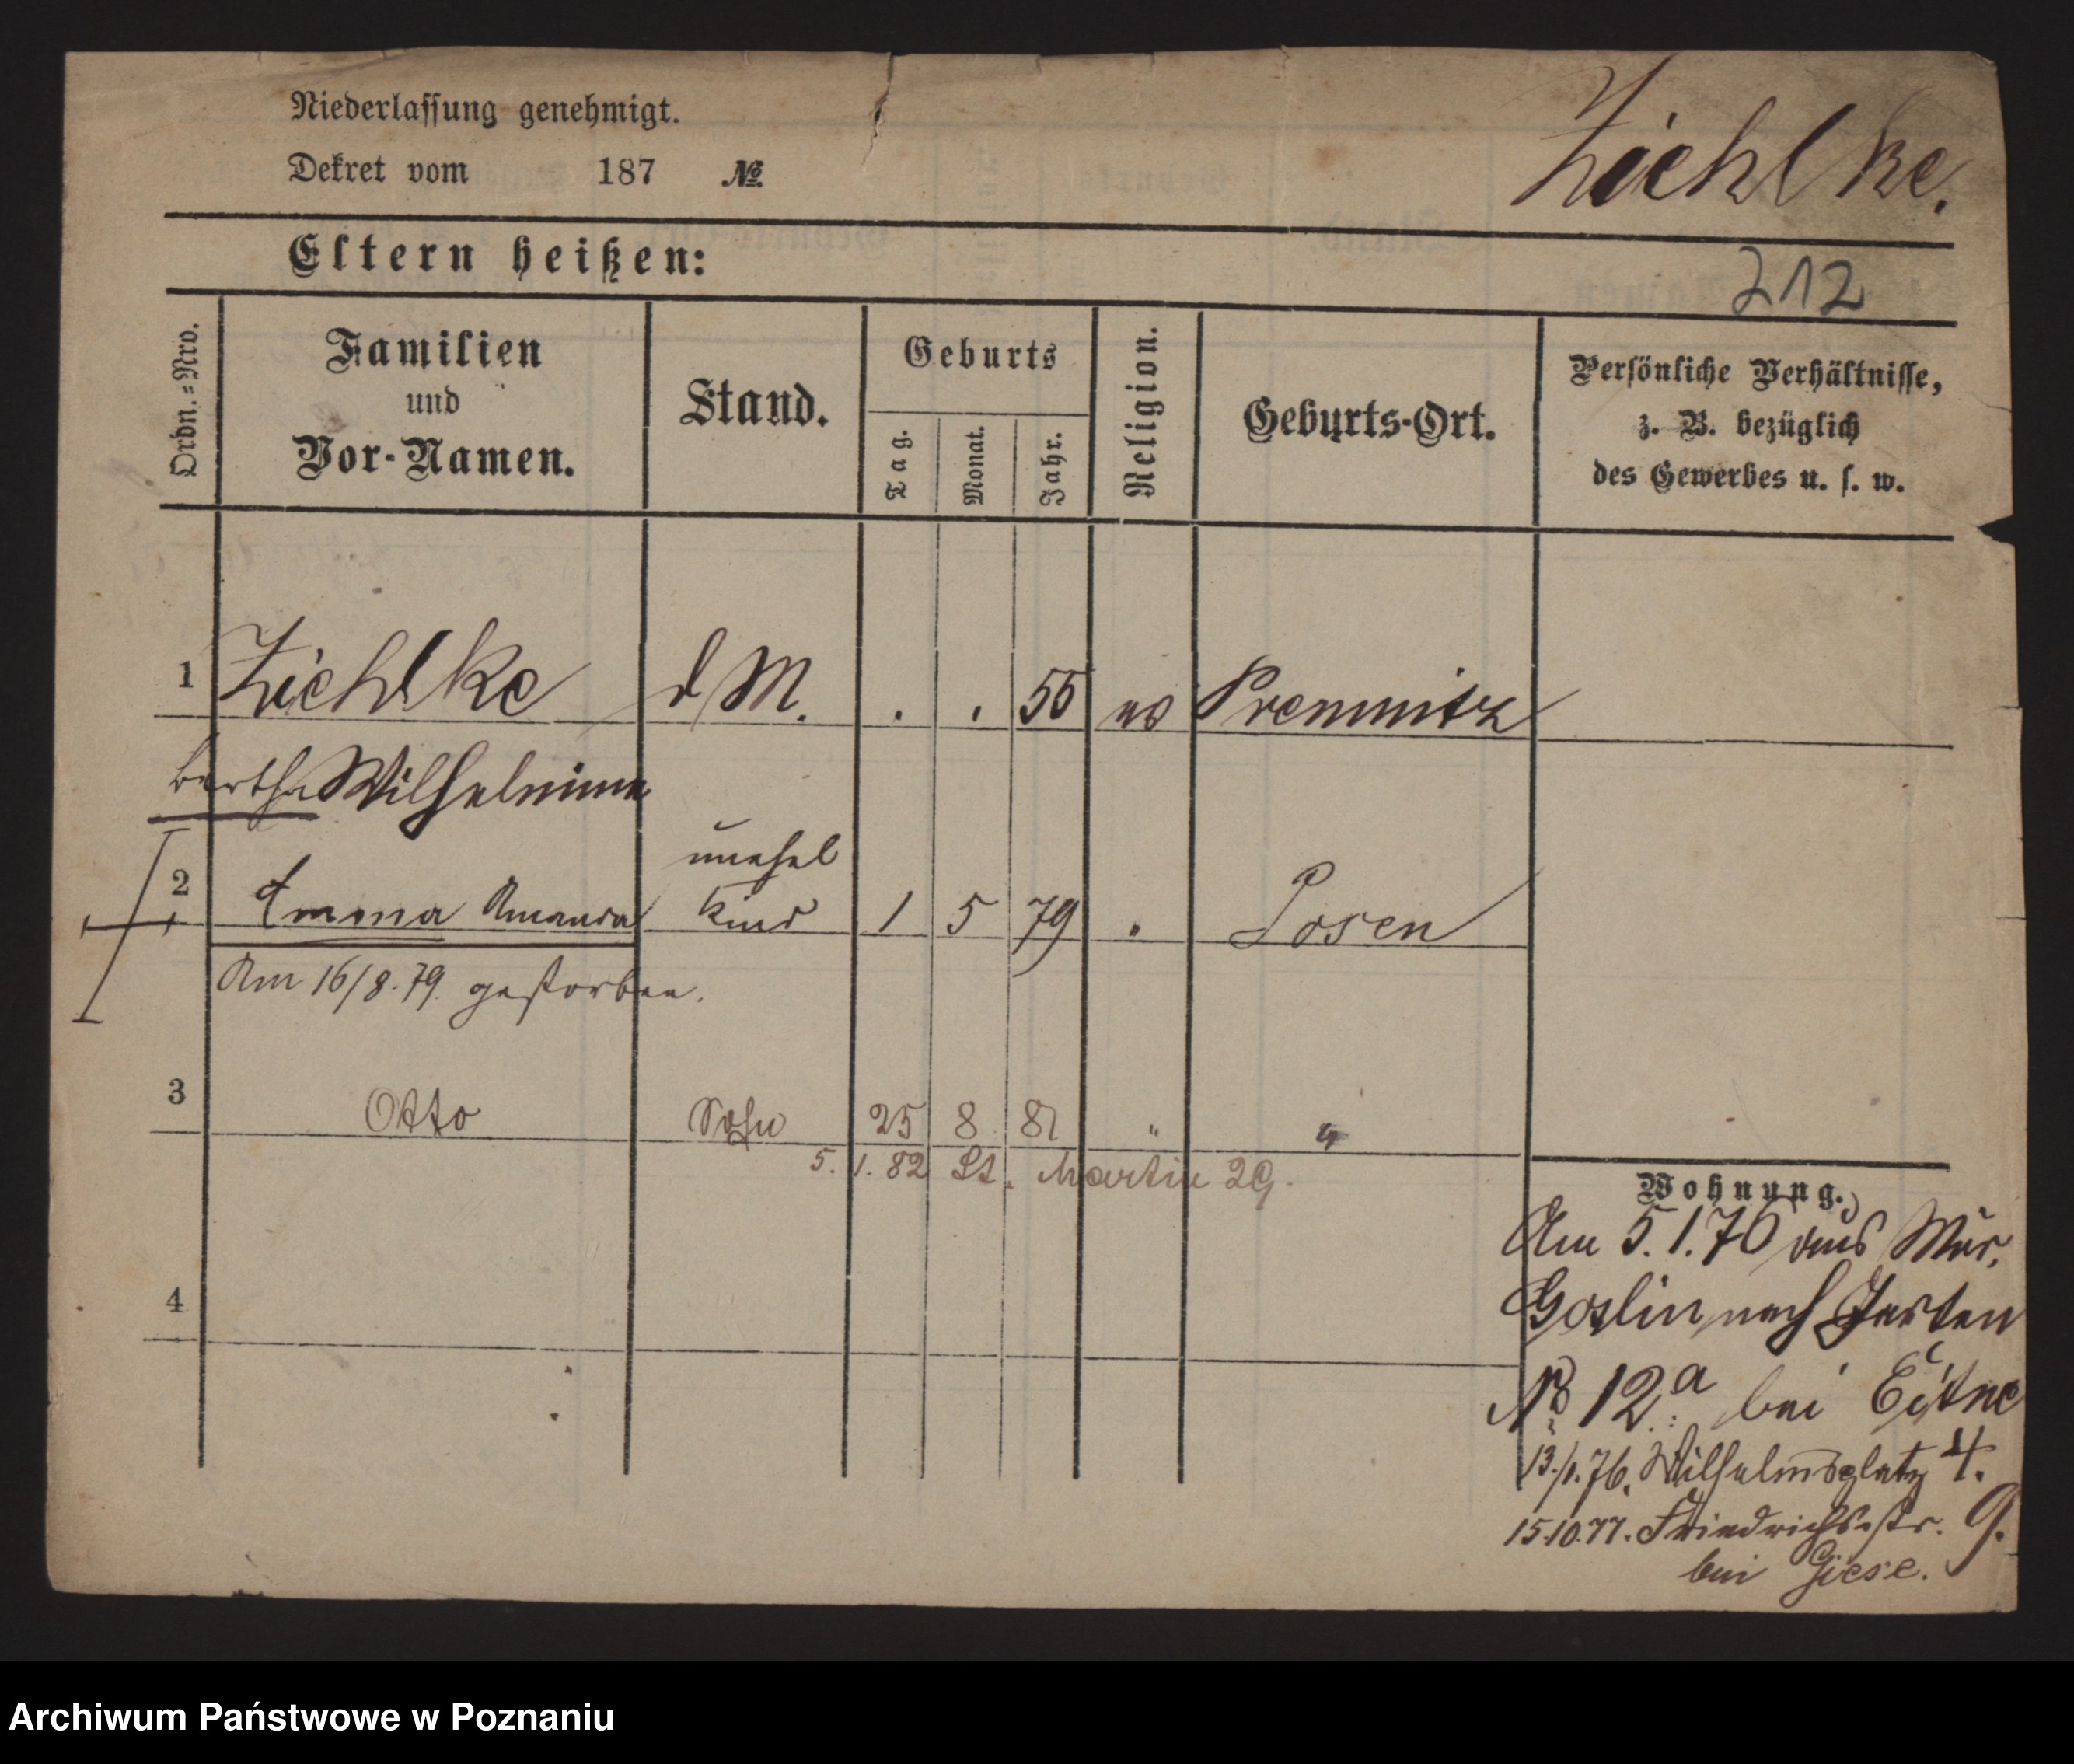 Niederlassung genehmigt.
Dekret vom 187 №
Ziehlke.
Eltern heißen:
212
Ordn.=Nro.
Familien
und
Vor-Namen.
Stand.
Geburts
Tag.
Monat.
Jahr.
Religion.
Geburts-Ort.
Persönliche Verhältnisse,
z. B. bezüglich
des Gewerbes u. s. w.
1 Ziehlke d M. . . 55 Premnitz
bertha Wilhelmine
unehel
2 Emma Amanda Kind 1 5 79 " Posen
Am 16/8.79. gestorben.
3 Otto Sohn 25 8 81 " "
5. 1. 82 St. Martin 29.
4
Wohnung.
Am 5.1.76 aus Mur.
Goslin nach Garten
№ 12a bei
13./1.76. Wilhelmsplatz 4.
15.10.77. Friedrichsstr. 9.
bei Giese.
Archiwum Państwowe w Poznaniu